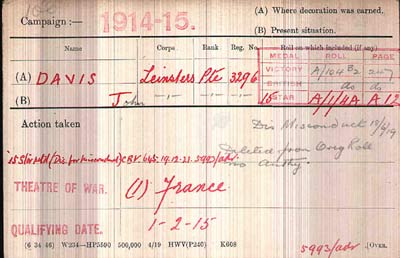 Campaign :— 1914-15.
(A) Where decoration was earned.
(B) Present situation.
Name Corps Rank Reg. No. Roll on which included (if any)
MEDAL ROLL PAGE
(A) DAVIS Leinsters Pte 3296 VICTORY A/104 B2
BRITISH do do
(B) John —"— —"— 15 STAR A/1/4A A 12
Action taken
Dis Misconduct
15 Star Retd (Dis. for Misconduct) CRV 645. 19.12.21. 5993/adv
Deleted from Orig Roll
no Authy.
THEATRE OF WAR. (1) France
QUALIFYING DATE. 1-2-15
(6 34 46) W234—HP5590 500,000 4/19 HWV(P240) K608
5993/adv [OVER.